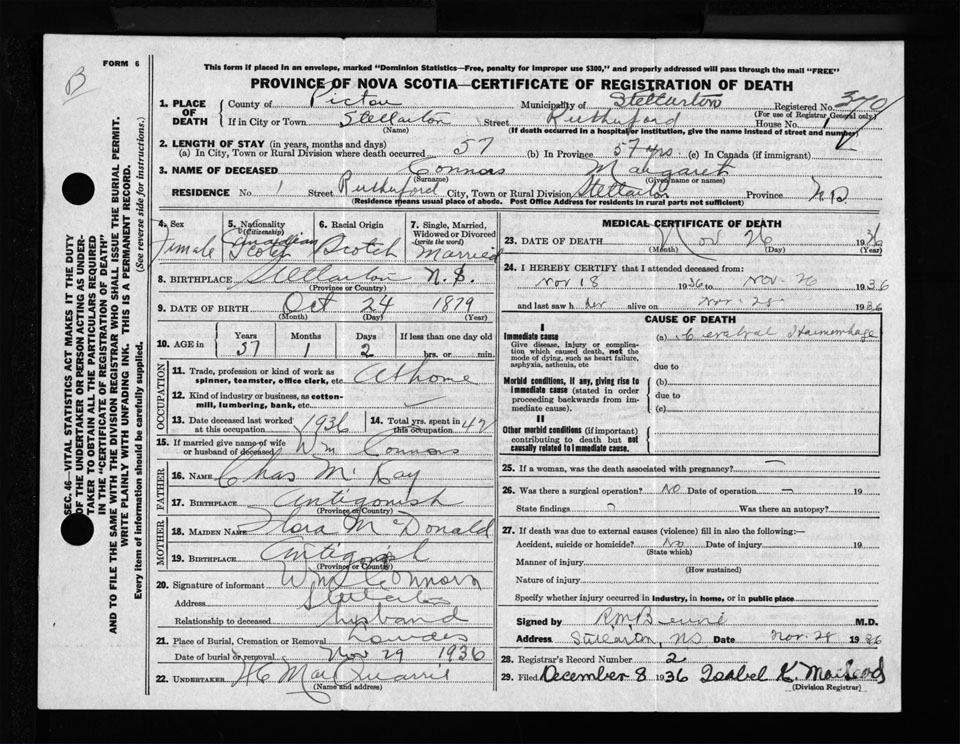 B
FORM 6
This form if placed in an envelope, marked "Dominion Statistics—Free, penalty for improper use $300," and properly addressed will pass through the mail "FREE"
PROVINCE OF NOVA SCOTIA—CERTIFICATE OF REGISTRATION OF DEATH
SEC. 46—VITAL STATISTICS ACT MAKES IT THE DUTY
OF THE UNDERTAKER OR PERSON ACTING AS UNDER-
TAKER TO OBTAIN ALL THE PARTICULARS REQUIRED
IN THE "CERTIFICATE OF REGISTRATION OF DEATH"
AND TO FILE THE SAME WITH THE DIVISION REGISTRAR WHO SHALL ISSUE THE BURIAL PERMIT.
WRITE PLAINLY WITH UNFADING INK. THIS IS A PERMANENT RECORD.
Every item of information should be carefully supplied. (See reverse side for instructions.)
1. PLACE OF DEATH
County of Pictou Municipality of Stellarton Registered No. 370
(For use of Registrar General only)
If in City or Town Stellarton Street Rutherford House No. 1
(Name) (If death occurred in a hospital or institution, give the name instead of street and number)
2. LENGTH OF STAY (in years, months and days)
(a) In City, Town or Rural Division where death occurred 57 (b) In Province 57 yrs (c) In Canada (if immigrant)
3. NAME OF DECEASED Connors Margaret
(Surname) (Given name or names)
RESIDENCE No. 1 Street Rutherford City, Town or Rural Division Stellarton Province N.S
(Residence means usual place of abode. Post Office Address for residents in rural parts not sufficient)
4. Sex 5. Nationality (Citizenship) 6. Racial Origin 7. Single, Married, Widowed or Divorced (write the word)
Female Canadian Scotch Scotch Married
8. BIRTHPLACE Stellarton N.S.
(Province or Country)
9. DATE OF BIRTH Oct 24 1879
(Month) (Day) (Year)
10. AGE in Years Months Days If less than one day old
57 1 2 hrs. or min.
OCCUPATION
11. Trade, profession or kind of work as spinner, teamster, office clerk, etc. At Home
12. Kind of industry or business, as cotton-mill, lumbering, bank, etc.
13. Date deceased last worked at this occupation 1936 14. Total yrs. spent in this occupation 42
15. If married give name of wife or husband of deceased Wm Connors
FATHER
16. NAME Chas McKay
17. BIRTHPLACE Antigonish
(Province or Country)
MOTHER
18. MAIDEN NAME Flora McDonald
19. BIRTHPLACE Antigonish
(Province or Country)
20. Signature of informant Wm Connors
Address Stellarton
Relationship to deceased husband
21. Place of Burial, Cremation or Removal Lourdes
Date of burial or removal Nov 29 1936
22. UNDERTAKER HC MacQuarrie
(Name and address)
MEDICAL CERTIFICATE OF DEATH
23. DATE OF DEATH Nov 26 1936
(Month) (Day) (Year)
24. I HEREBY CERTIFY that I attended deceased from:
Nov 18 1936 to Nov. 26 1936
and last saw her alive on Nov. 25 1936
CAUSE OF DEATH
I
Immediate cause (a) Cerebral Haemorrhage
Give disease, injury or complication which caused death, not the mode of dying, such as heart failure, asphyxia, asthenia, etc
due to
Morbid conditions, if any, giving rise to immediate cause (stated in order proceeding backwards from immediate cause).
(b)
due to
(c)
II
Other morbid conditions (if important) contributing to death but not causally related to immediate cause.
25. If a woman, was the death associated with pregnancy? —
26. Was there a surgical operation? No Date of operation —
State findings Was there an autopsy?
27. If death was due to external causes (violence) fill in also the following:—
Accident, suicide or homicide? No Date of injury 19
(State which)
Manner of injury
(How sustained)
Nature of injury
Specify whether injury occurred in industry, in home, or in public place
Signed by M.D.
Address Stellarton, NS Date Nov. 28 1936
28. Registrar's Record Number 2
29. Filed December 8 1936 Isabel K. MacLeod
(Division Registrar)